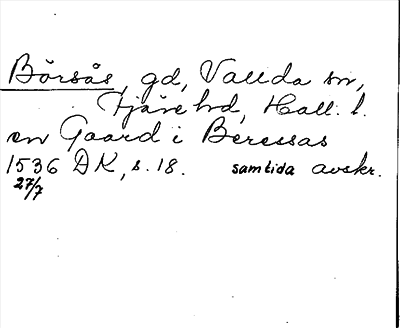 Börsås, gd, Vallda sn,
Fjäre hd, Hall. l.
en Gaard i Beressas
1536 27/7 DK, s. 18. samtida avskr.